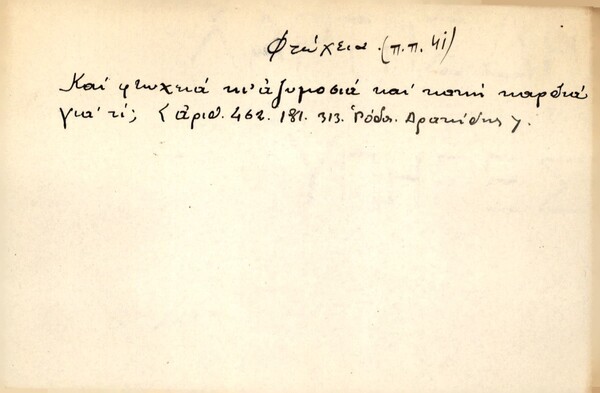 Φτώχεια. (π.π. 41)
Καί φτωχειά κι' ἀζυμοσιά καί κακή καρδιά
γιά τί; ἀριθ. 462. 181. 313. Ῥόδο. Δρακίδης γ.